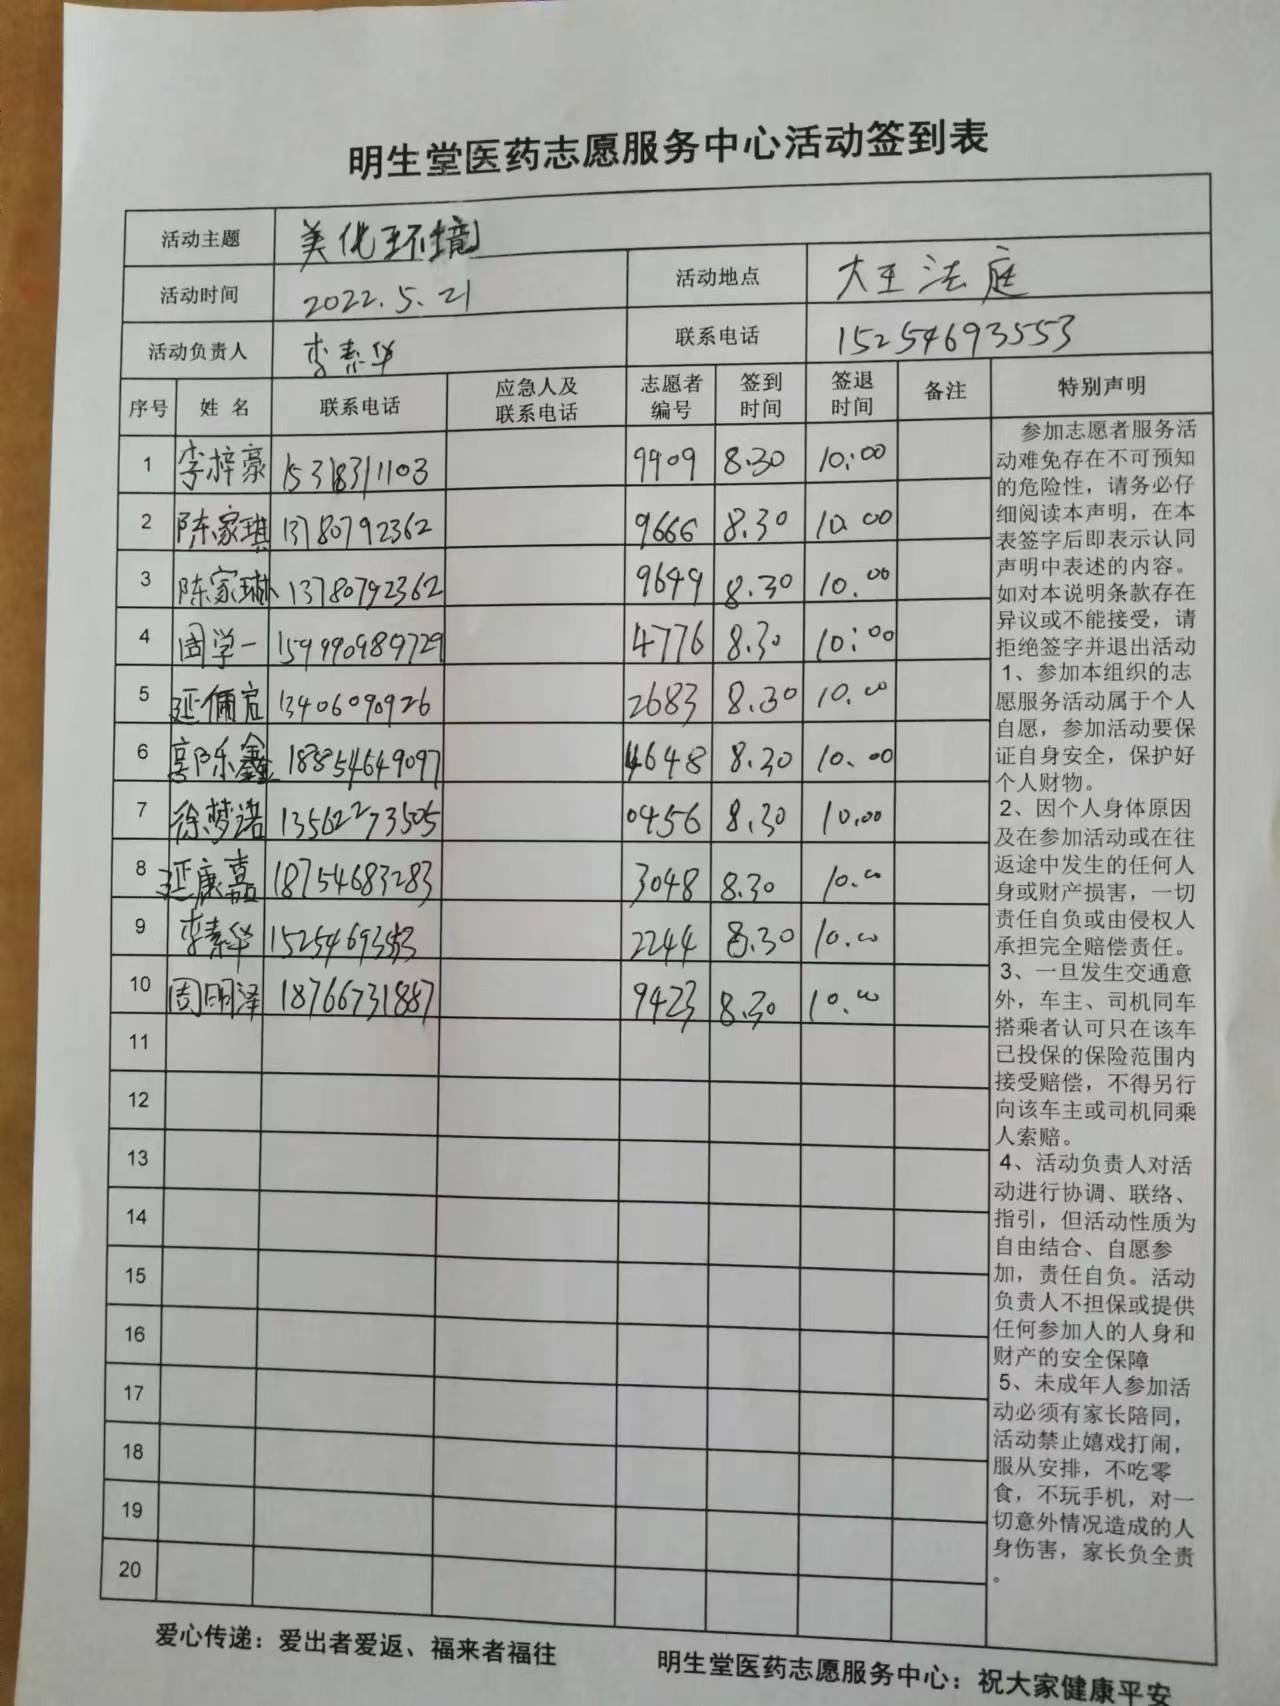 明生堂医药志愿服务中心活动签到表
活动主题 美化环境
活动时间 2022.5.21 活动地点 大王法庭
活动负责人 李素华 联系电话 15254693553
序号 姓名 联系电话 应急人及联系电话 志愿者编号 签到时间 签退时间 备注 特别声明
1 李梓豪 15318311103 9909 8.30 10:00
2 陈家琪 13780792362 9666 8.30 10.00
3 陈家琳 13780792362 9649 8.30 10.00
4 周学一 4776 8.30 10:00
5 延 13406090926 2683 8.30 10.00
6 郭乐鑫 18854649097 4648 8.30 10.00
7 徐梦诺 13562273505 0456 8.30 10.00
8 延康嘉 18754683283 3048 8.30 10.00
9 李素华 15254693553 2244 8.30 10.00
10 周明泽 18766731887 9423 8.30 10.00
11
12
13
14
15
16
17
18
19
20
参加志愿者服务活
动难免存在不可预知
的危险性，请务必仔
细阅读本声明，在本
表签字后即表示认同
声明中表述的内容。
如对本说明条款存在
异议或不能接受，请
拒绝签字并退出活动
1、参加本组织的志
愿服务活动属于个人
自愿，参加活动要保
证自身安全，保护好
个人财物。
2、因个人身体原因
及在参加活动或在往
返途中发生的任何人
身或财产损害，一切
责任自负或由侵权人
承担完全赔偿责任。
3、一旦发生交通意
外，车主、司机同车
搭乘者认可只在该车
已投保的保险范围内
接受赔偿，不得另行
向该车主或司机同乘
人索赔。
4、活动负责人对活
动进行协调、联络、
指引，但活动性质为
自由结合、自愿参
加，责任自负。活动
负责人不担保或提供
任何参加人的人身和
财产的安全保障
5、未成年人参加活
动必须有家长陪同，
活动禁止嬉戏打闹，
服从安排，不吃零
食，不玩手机，对一
切意外情况造成的人
身伤害，家长负全责
。
爱心传递：爱出者爱返、福来者福往 明生堂医药志愿服务中心：祝大家健康平安